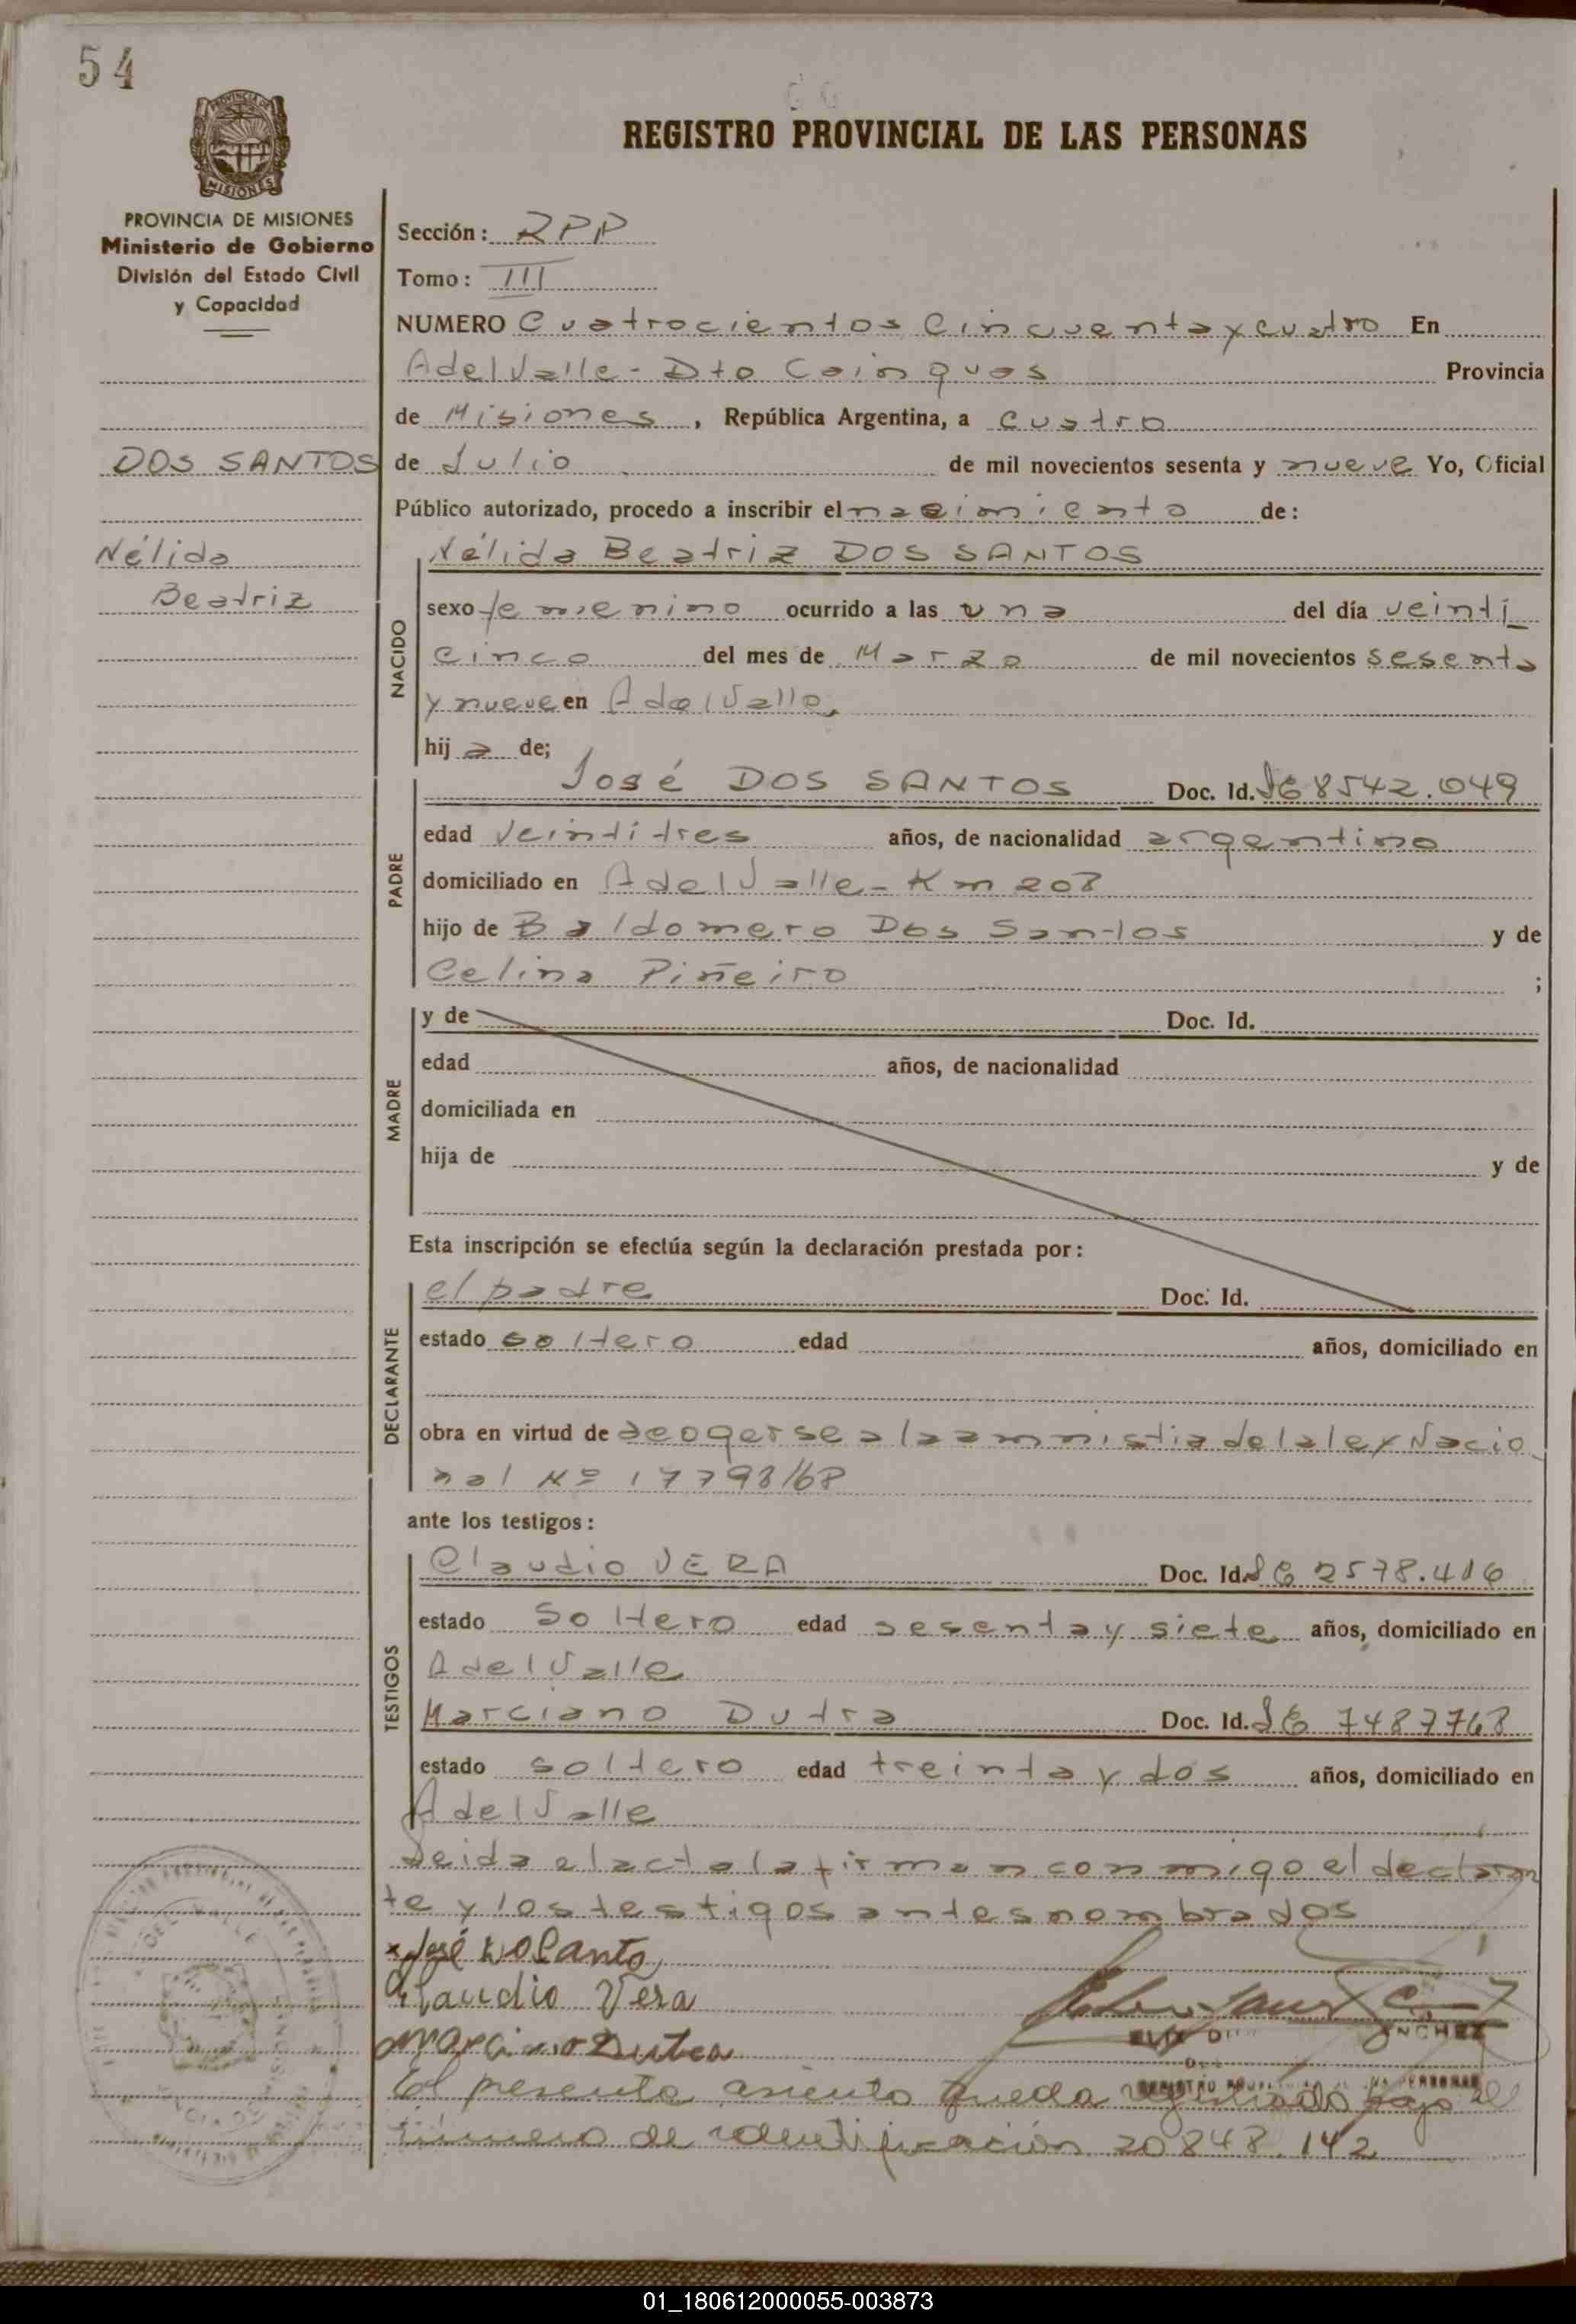 54
REGISTRO PROVINCIAL DE LAS PERSONAS
PROVINCIA DE MISIONES
Ministerio de Gobierno
División del Estado Civil
y Capacidad
DOS SANTOS
Nélida
Beatriz
Sección: RPP
Tomo: III
NUMERO Cuatrocientos Cincuenta y cuatro En
A del Valle - Dto Cainguas Provincia
de Misiones, República Argentina, a cuatro
de Julio de mil novecientos sesenta y nueve Yo, Oficial
Público autorizado, procedo a inscribir el nacimiento de:
NACIDO
Nélida Beatriz DOS SANTOS
sexo femenino ocurrido a las una del día veinti
cinco del mes de Marzo de mil novecientos sesenta
y nueve en A del Valle.
hija de;
PADRE
José DOS SANTOS Doc. Id. 8542.049
edad veintitres años, de nacionalidad argentino
domiciliado en A del Valle - Km 208
hijo de Baldomero Dos Santos y de
Celina Piñeiro ;
MADRE
y de Doc. Id.
edad años, de nacionalidad
domiciliada en
hija de y de
Esta inscripción se efectúa según la declaración prestada por:
DECLARANTE
el padre Doc. Id.
estado soltero edad años, domiciliado en
obra en virtud de acogerse a la amnistia de la ley Nacio
nal Nº 17798/68
ante los testigos:
TESTIGOS
Claudio VERA Doc. Id. 2578.416
estado soltero edad sesenta y siete años, domiciliado en
A del Valle
Marciano Dutra Doc. Id. 7487768
estado soltero edad treinta y dos años, domiciliado en
A del Valle
Leida el acta la firman conmigo el declaran
te y los testigos antes nombrados
x José Do Santo
Claudio Vera
Marciano Dutra
El presente asiento queda registrado bajo el
número de identificación 20848.142
01_180612000055-003873